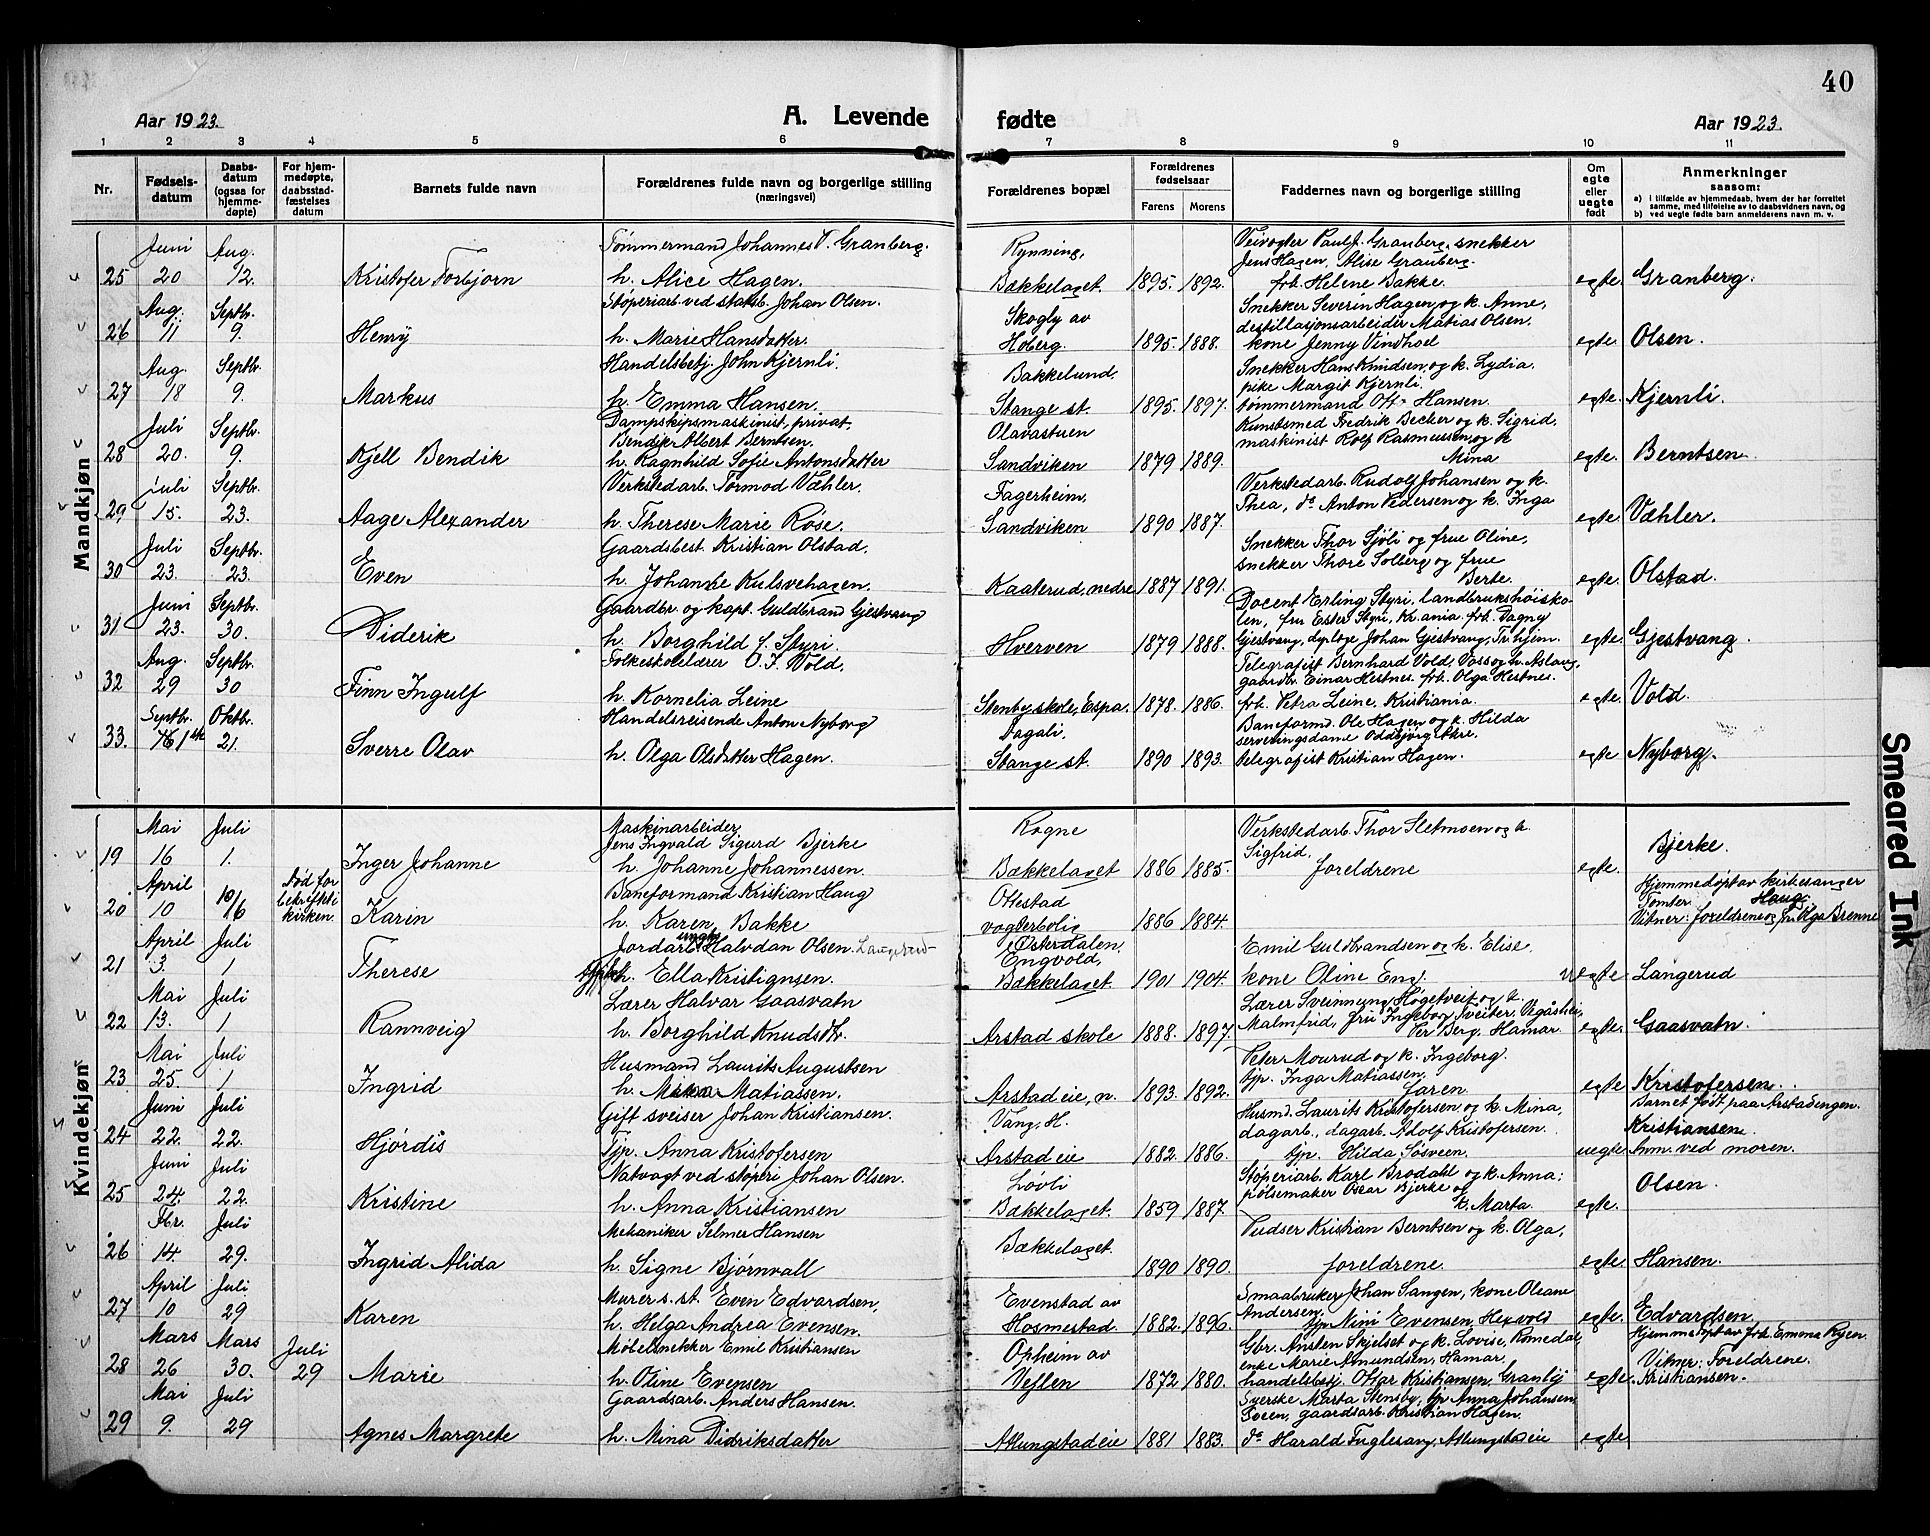 40
Aar 1923.
A. Levende fødte
Aar 1923.
1 2 3 4 5 6 7 8 9 10 11
Nr.
Fødsels-
datum
Daabs-
datum
(ogsaa for
hjemme-
døpte)
For hjem-
medøpte,
daabsstad-
fæstelses
datum
Barnets fulde navn
Forældrenes fulde navn og borgerlige stilling
(næringsvei)
Forældrenes bopæl
Forældrenes
fødselsaar
Farens Morens
Faddernes navn og borgerlige stilling
Om
egte
eller
uegte
født
Anmerkninger
saasom:
a) i tilfælde av hjemmedaab, hvem der har forrettet
samme, med tilføielse av to daabsvidners navn, og
b) ved uegte fødte barn anmelderens navn m. v.
Mandkjøn
Juni Aug. Tømmermand Johannes P. Granberg. Rynning, Veivogter Paul J. Granberg, snekker
Jens Hagen, Alise Granberg.
25 20 12. Kristofer Torbjørn h. Alice Hagen. Bækkelaget. 1895. 1892. frk. Helene Bakke. egte. Granberg.
Aug. Septbr. Støperiarb. ved statsb. Johan Olsen. Skogly av Snekker Severin Hagen og k. Anne,
destillasjonsarbeider Matias Olsen.
26 11 9. Henry h. Marie Hansdatter. Hoberg. 1895. 1888. kone Jenny Vindhol egte. Olsen.
Aug. Septbr. Handelsbetj. John Kjernli. Bakkelund. Snekker Hans Knudsen og k. Lydia.
pike Margit Kjernli.
27 18 9. Markus h. Emma Hansen. Stange st. 1895. 1897. tømmermand Ott. Hansen. egte. Kjernli.
Juli Septbr. Dampskipsmaskinist, privat. Olavastuen Kunstsmed Fredrik Becker og k. Sigrid,
Bendik Olbert Berntsen. maskinist Rolf Rasmussen og k
28 20. 9. Kjell Bendik h. Ragnhild Sofie Antonsdatter Sandviken 1879 1889. Mina egte. Berntsen.
Juli Septbr. Verkstedarb. Tormod Væhler. Fagerheim, Verkstedarb. Rudolf Johansen og k.
Thea, ds Anton Pedersen og k. Inga
29 15. 23. Aage Alexander h. Therese Marie Røse. Sandviken 1890 1887. egte. Væhler.
Juli Septbr. Gaardsbest. Kristian Olstad. Snekker Thor Sjøli og frue Oline,
snekker Thore Solberg og frue
30 23. 23. Even h. Johanne Kulsvehagen. Kaaterud, nedre 1887 1891. Berte. egte. Olstad.
Juni Septbr. Gaardbr. og kapt. Guldbrand Gjestvang Docent Erling Styri, landbrukshøisko-
len, fru Ester Styri, Kr.ania frk. Dagny
31 23. 30. Diderik h. Borghild f. Styri Hverven 1879 1888. Gjestvang, dyrlæge Johan Gjestvang, Tr.hjem. egte. Gjestvang.
Aug. Septbr. Folkeskolelærer O. J. Vold. Telegrafist Bernhard Vold, Voss og h. Aslaug,
gaardbr. Einar Hestnes. frk. Olga Hestnes.
32 29 30 Finn Ingulf h. Kornelia Leine Stenby skole, Espa. 1878. 1886. frk. Petra Leine, Kristiania. egte. Vold.
Septbr. Oktbr. Handelsreisende Anton Nyborg Dagali, Baneformd. Ole Hagen og k. Hilda
serveringsdame Oddbjørg Akre.
33. 1ste 21. Sverre Olav h. Olga Olsdatter Hagen. Stange st. 1890 1893. telegrafist Kristian Hagen. egte Nyborg.
Kvindekjøn
Mai Juli Maskinarbeider Rogne Verkstedarb. Thor Sletmoen og k.
Jens Ingvald Sigurd Bjerke Sigfrid. Bjerke.
19 16 1. Inger Johanne h. Johanne Johannessen. Bækkelaget 1886 1885. foreldrene egte.
April Død før bekreft. i kirken. Baneformand Kristian Haug Ottestad Hjemmedøpt av kirkesanger
Tomter. Haug.
20 10 10/6 Karin h. Karen Bakke vogterbolig 1886 1884. Vitner: foreldrene og fru Olga Brenne
April Juli Jordarb. ungk. Halvdan Olsen. Langerud Østerdalen. Engvold, Emil Guldbrandsen og k. Elise.
21 3. 1 Therese Ella Kristiansen. Bækkelaget. 1901 1904. kone Oline Eng. uegte. Langerud
Mai Juli Lærer Halvar Gaasvatn Lærer Sveinung Høgetveit og k.
Malmfrid, fru Ingeborg Sveiter, Vegåshei,
22 13. 1 Rannveig h. Borghild Knudsdtr. Arstad skole 1888. 1897. Per Berg, Hamar. egte. Gaasvatn.
Mai Juli Husmand Laurits Augustsen Peter Mourud og k. Ingeborg.
tjp. Inga Matiassen,
23 25. 1 Ingrid h. Mina Matiassen. Arstad eie, n. 1893. 1892. Jaren. egte Kristofersen.
Barnet født paa Arstadengen.
Juni Juli Gift sveiser Johan Kristiansen. Vang, H. Husmd. Laurits Kristofersen og k. Mina,
dagarb., dagarb. Adolf Kristofersen. Kristiansen.
24 22. 22. Hjørdis Tjp. Anna Kristofersen Arstad eie 1882. 1886. tjp. Hilda Løsveen. uegte Anm. ved moren.
Juni Juli Natvagt ved støperi Johan Olsen. Løvli Støperiarb. Karl Brodahl og k. Anna;
pølsemaker Oscar Bjerke og Olsen.
25 24. 22. Kristine h. Anna Kristiansen Bækkelaget. 1859 1887 k. Marta. egte.
Fbr. Juli Mekaniker Selmer Hansen Bækkelaget. Pudser Kristian Berntsen og k. Olga,
26 14. 29. Ingrid Alida h. Signe Bjørnvall 1890 1890. foreldrene. egte. Hansen.
April Juli Murer s. st. Even Edvardsen, Evenstad av Smaabruker Johan Sangen, kone Oleane
Andersen,
27 10 29 Karen h. Helga Andrea Evensen. Hosmestad. 1882. 1896. tjp. Nini Evensen, Hexvold egte. Edvardsen.
Mars Mars Juli Møbelsnekker Emil Kristiansen Opheim av Gbr. Ansten Skjelset og k. Lovise, Romedal, Hjemmedøpt av frk. Emma Ryen.
enke Marie Amundsen, Hamar. Vitner: Foreldrene.
28 26 30. 29 Marie h. Oline Evensen Veflen 1872 1880. handelsbetj. Ottar Kristiansen, Granlij egte. Kristiansen.
Mai Juli Gaardsarb. Anders Hansen. Syerske Marta Stensby, tjp. Anna Johansen,
Sveen, gaardsarb. Kristian Hagen.
29 9. 29 Agnes Margrete h. Mina Didriksdatter Atlungstadeie 1881 1883. ds Harald Fuglesang, Atlungstadeie egte
Smeared Ink